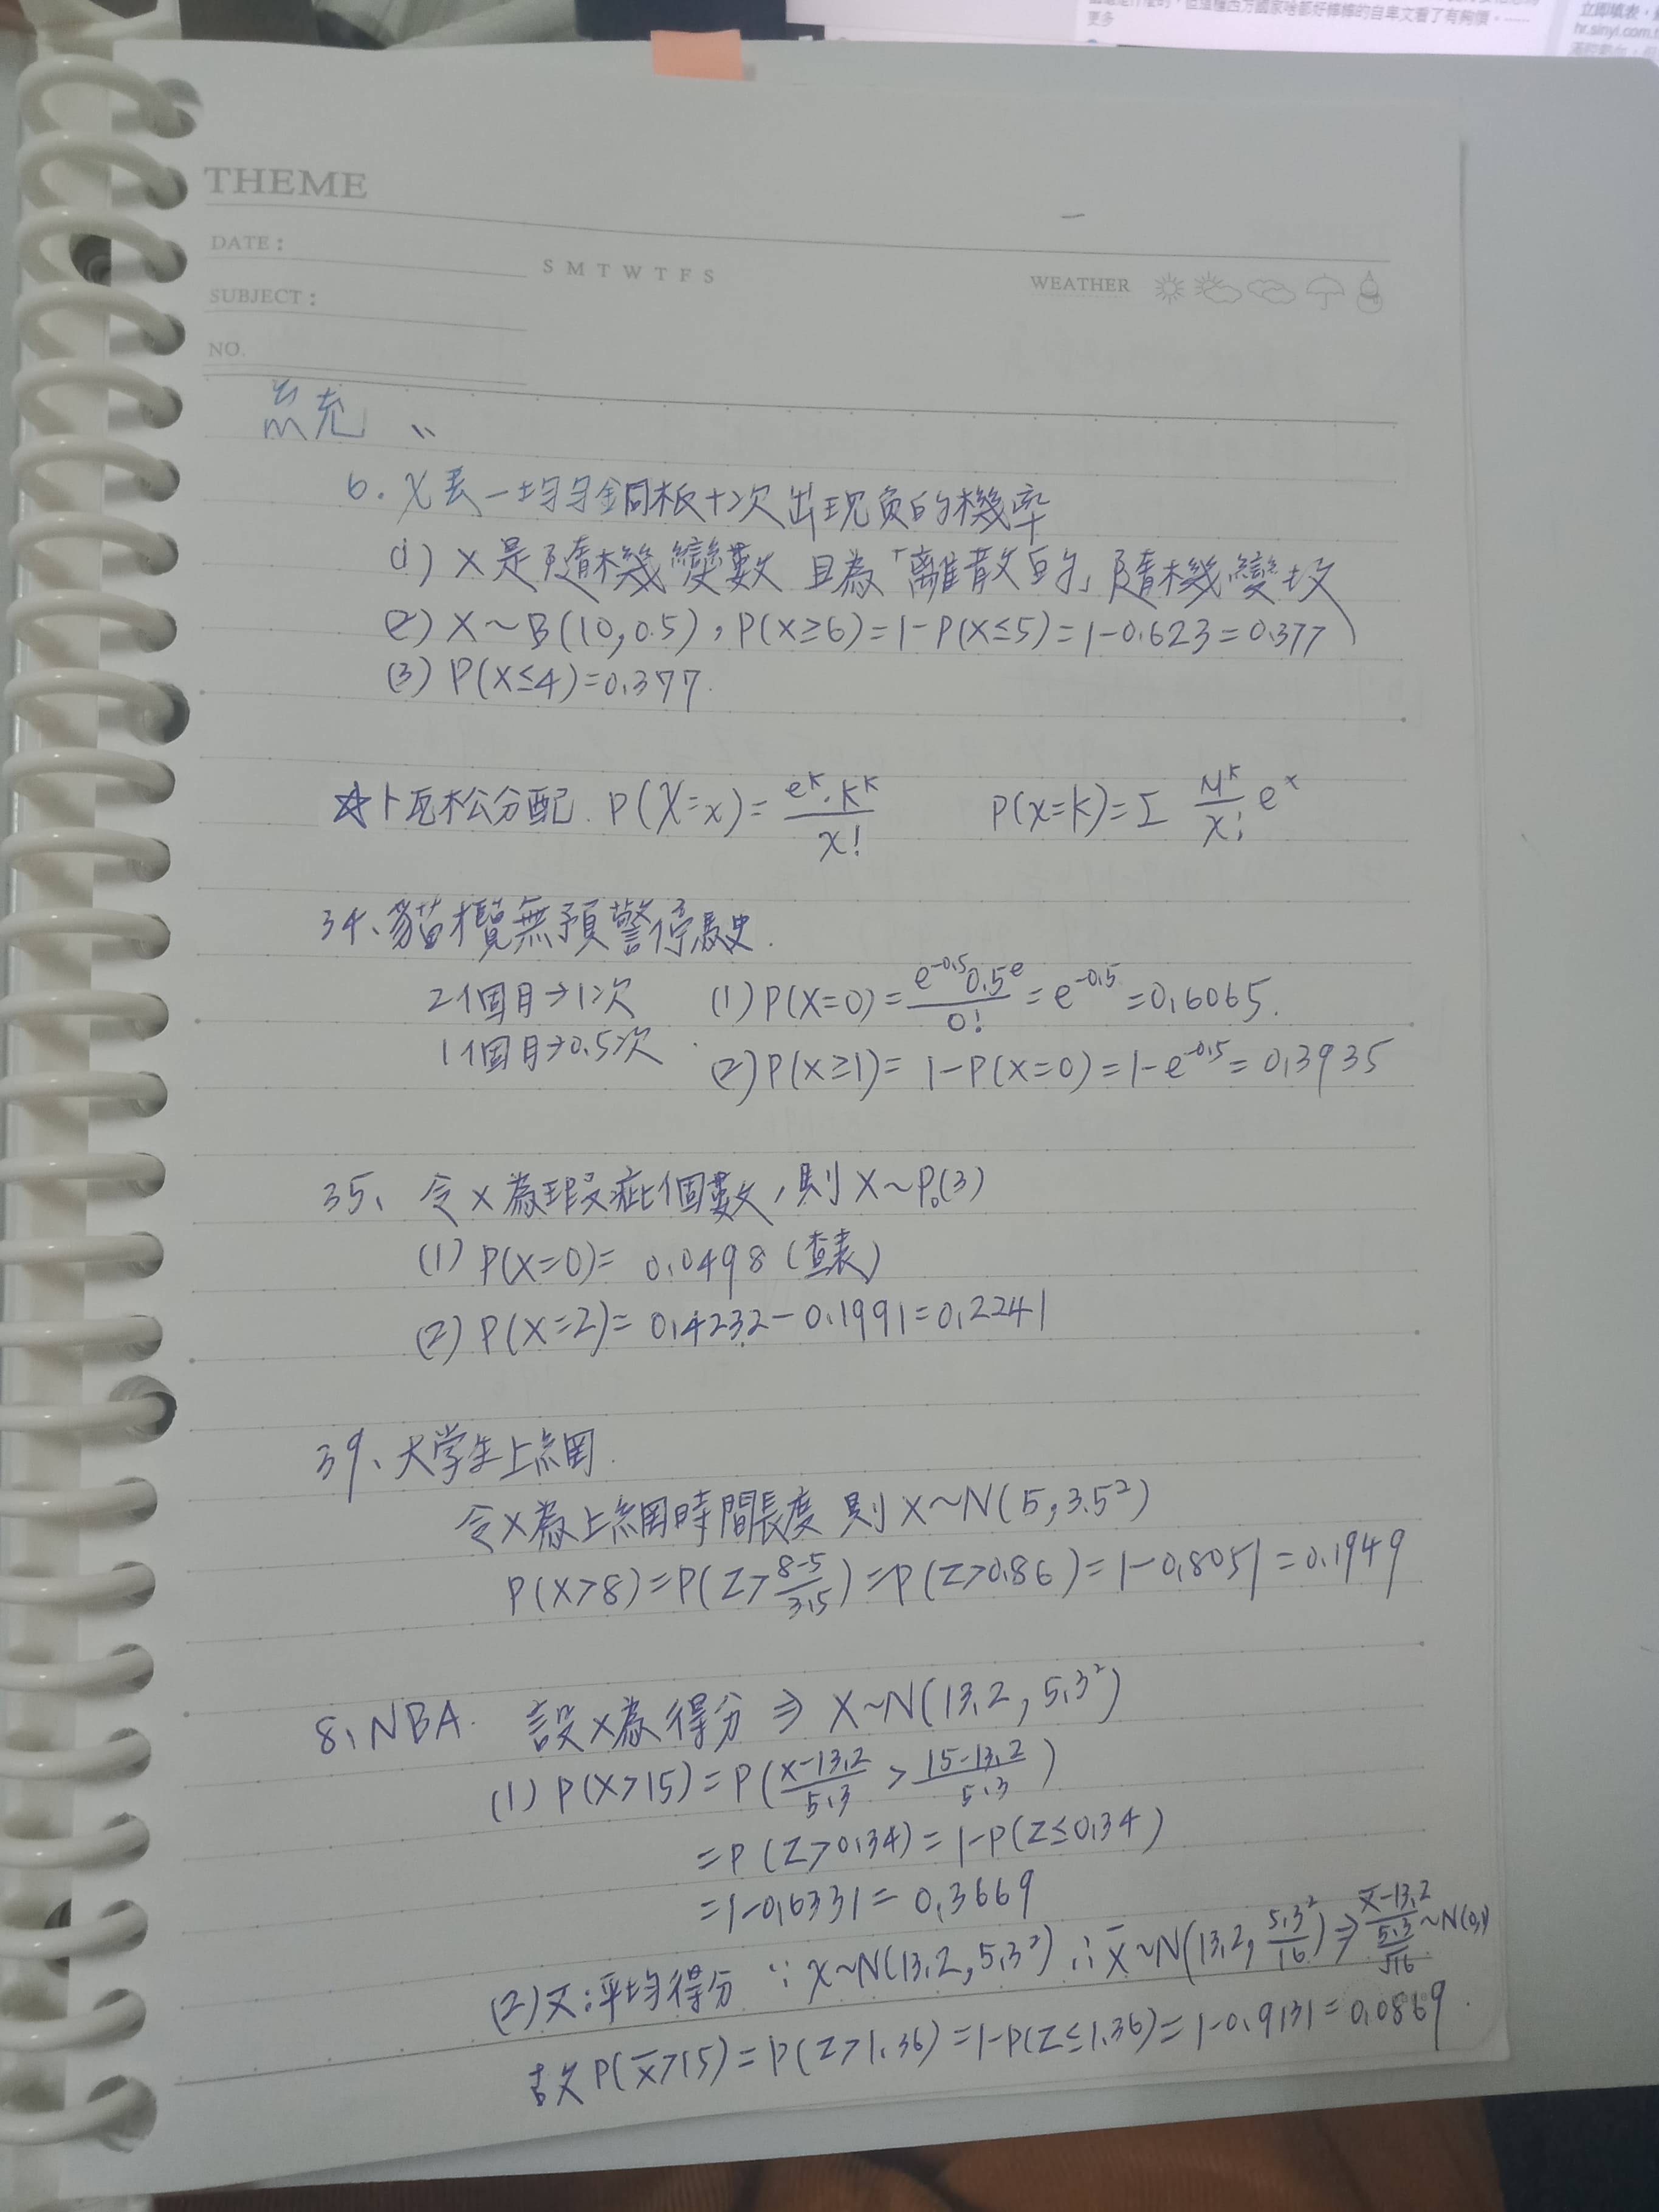 更多
立即填表，
hr.sinyi.com.t
THEME
DATE :
S M T W T F S
WEATHER
SUBJECT :
NO.
統充 〃
6. X丟一均勻銅板十次出現負的機率
(1) X是隨機變數 且為「離散的」隨機變攻
(2) X~B(10,0.5), P(X≥6)=1-P(X≤5)=1-0.623=0.377
(3) P(X≤4)=0.377.
☆卜瓦松分配. P(X=x)= e^k·k^k / x!   P(x=k)=Σ M^k / x! e^x
34、貓欖無預警停駛.
2個月→1次 (1) P(X=0)= e^-0.5 0.5^e / 0! = e^-0.5 =0.6065.
1個月→0.5次. (2) P(X≥1)= 1-P(X=0)=1-e^-0.5=0.3935
35、令X為瑕疵個數,則X~Po(3)
(1) P(X=0)= 0.0498 (查表)
(2) P(X=2)= 0.4232-0.1991=0.2241
39、大学生上網.
令X為上網時間長度 則X~N(5,3.5²)
P(X>8)=P(Z> 8-5 / 3.5)=P(Z>0.86)=1-0.8051=0.1949
8、NBA. 設X為得分 ⇒ X~N(13.2, 5.3²)
(1) P(X>15)=P( x-13.2 / 5.3 > 15-13.2 / 5.3 )
=P(Z>0.34)=1-P(Z≤0.34)
=1-0.6331= 0.3669
(2) x̄:平均得分 ∵ X~N(13.2,5.3²) ∴ x̄~N(13.2, 5.3² / 16) ⇒ x̄-13.2 / 5.3/√16 ~N(0,1)
故P(x̄>15)=P(Z>1.36)=1-P(Z≤1.36)=1-0.9131=0.0869.